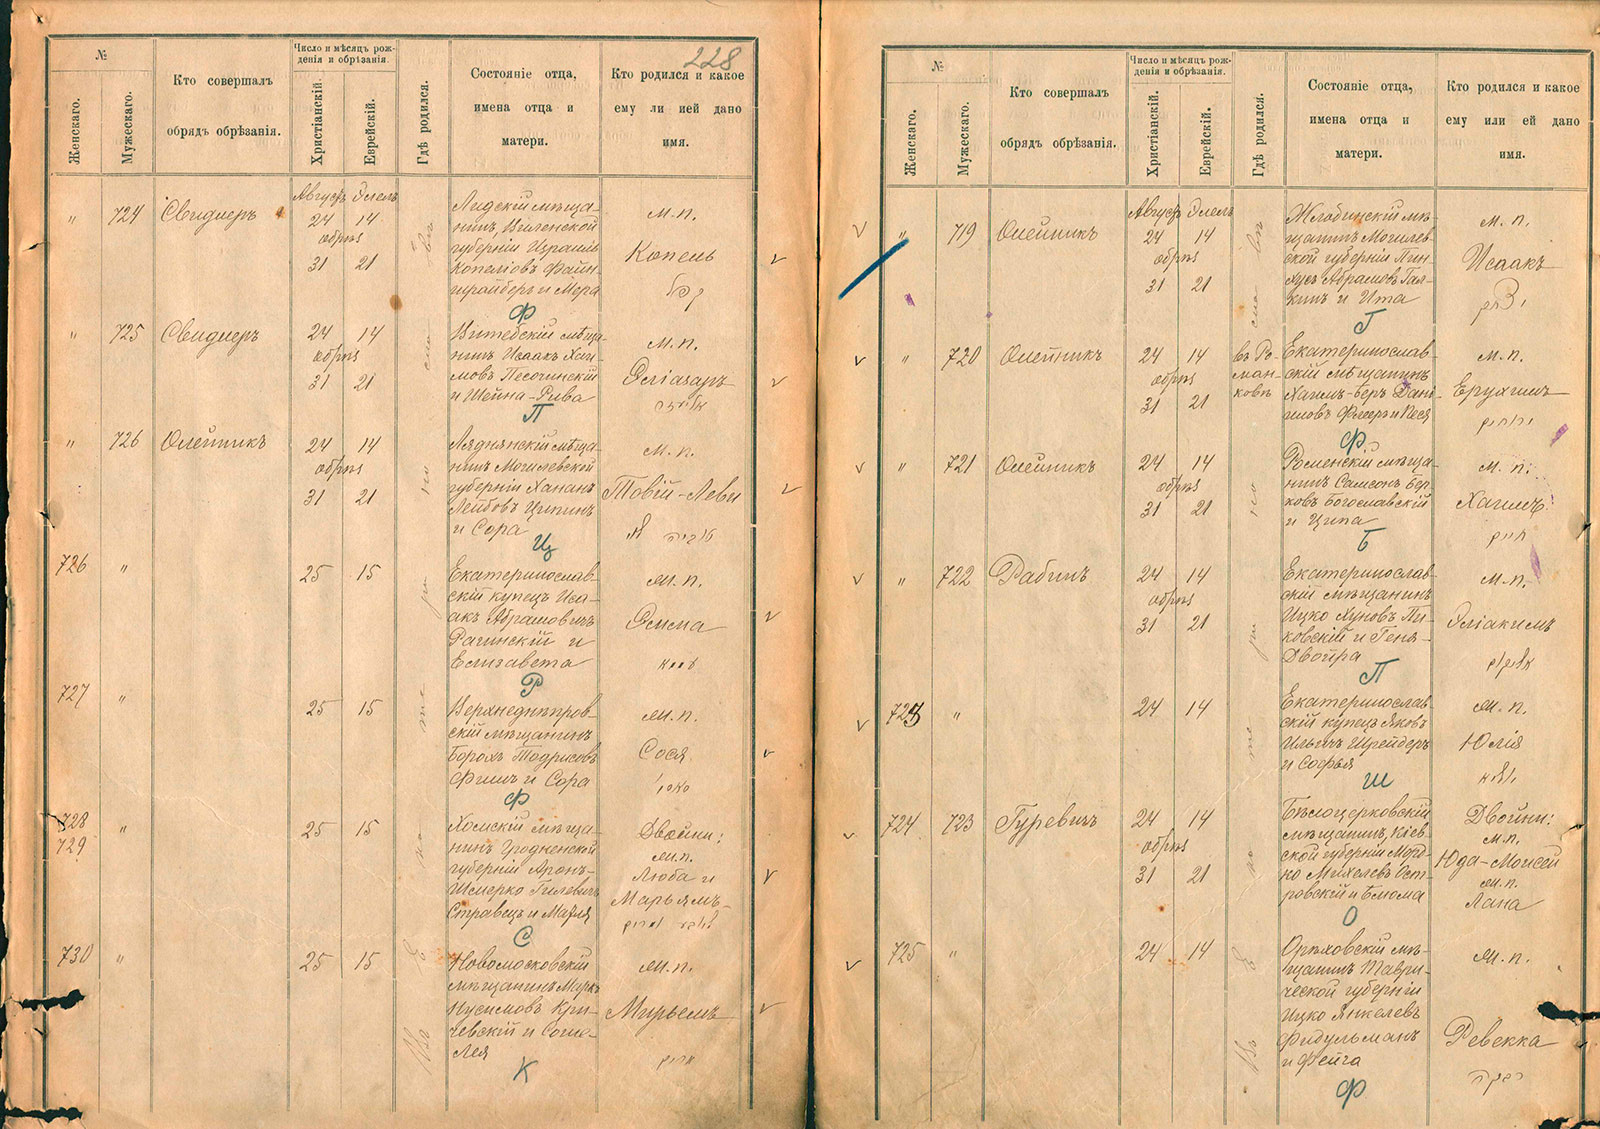 228
№
Женскаго.
Мужескаго.
Кто совершалъ
обрядъ обрѣзанія.
Число и мѣсяцъ рож-
денія и обрѣзанія.
Христіанскій.
Еврейскій.
Гдѣ родился.
Состояніе отца,
имена отца и
матери.
Кто родился и какое
ему ли ией дано
имя.
Августъ Элелъ
„ 724 Свидлеръ 24 14
обрѣз
31 21
Лидскій мѣща-
нинъ, Виленской
губерніи Израиль
Копеліовъ Файн-
шрайберъ и Мера
Ф
м.п.
Копель
קאפל
„ 725 Свидлеръ 24 14
обрѣз
31 21
Витебскій мѣща-
нинъ Исаакъ Хаи-
мовъ Песочинскій
и Шейна-Рива
П
м.п.
Эліазаръ
„ 726 Олейникъ 24 14
обрѣз
31 21
Ляднянскій мѣща-
нинъ Могилевской
губерніи Ханан
Лейбовъ Ципинъ
и Сора
Ц
м.п.
Товій-Леви
טוביה לוי
726 „ 25 15
Екатеринослав-
скій купецъ Иса-
акъ Абрамовичъ
Рагинскій и
Елизавета
Р
ж.п.
Эмма
עממא
727 „ 25 15
Верхнеднѣпров-
скій мѣщанинъ
Борохъ Тодрисовъ
Фишъ и Сора
Ф
ж.п.
Сося
728
729 „ 25 15
Хомскій мѣща-
нинъ Гродненской
губерніи Аронъ-
Шмерко Гилевичъ
Стравецъ и Маля
С
Двойни:
ж.п.
Люба и
Марьямъ-
ליבע מרים
730 „ 25 15
Новомосковскій
мѣщанинъ Маркъ
Нусимовъ Кри-
чевскій и Сома-
Лея
К
ж.п.
Мирьемъ
מרים
Въ Е
№
Женскаго.
Мужескаго.
Кто совершалъ
обрядъ обрѣзанія.
Число и мѣсяцъ рож-
денія и обрѣзанія.
Христіанскій.
Еврейскій.
Гдѣ родился.
Состояніе отца,
имена отца и
матери.
Кто родился и какое
ему или ей дано
имя.
Августъ Элелъ
„ 719 Олейникъ 24 14
обрѣз
31 21
Жлобинскій мѣ-
щанинъ Могилев-
ской губерніи Пин-
хусъ Абрамовъ Гал-
кинъ и Ита
Г
м.п.
Исаакъ
יצחק
„ 720 Олейникъ 24 14
обрѣз
31 21
въ Ро-
ман-
ковѣ
Екатеринослав-
скій мѣщанинъ
Хаимъ-Беръ Дані-
иловъ Фишеръ и Песя
Ф
м.п.
Ерухимъ
ירוחים
„ 721 Олейникъ 24 14
обрѣз
31 21
Роменскій мѣща-
нинъ Самсонъ Бер-
ковъ Богославскій
и Ципа
Б
м.п.
Хаимъ
חיים
„ 722 Рабинъ 24 14
обрѣз
31 21
Екатеринослав-
скій мѣщанинъ
Ицко Хуновъ Пи-
ковскій и Геня-
Двойра
П
м.п.
Эліакимъ
אליקים
723 „ 24 14
Екатеринослав-
скій купецъ Яковъ
Ильичъ Шрейдеръ
и Софья
Ш
ж.п.
Юлія
יוליא
724 723 Гуревичъ 24 14
обрѣз
31 21
Бѣлоцерковскій
мѣщанинъ, Кіев-
ской губерніи Морд-
ко Михелевъ Ост-
ровскій и Блюма
О
Двойни:
м.п.
Юда-Моисей
ж.п.
Лана
725 „ 24 14
Орѣховскій мѣ-
щанинъ Таври-
ческой губерніи
Ицко Янкелевъ
Фидульманъ
и Фейга
Ф
ж.п.
Ревекка
רבקה
Въ Е